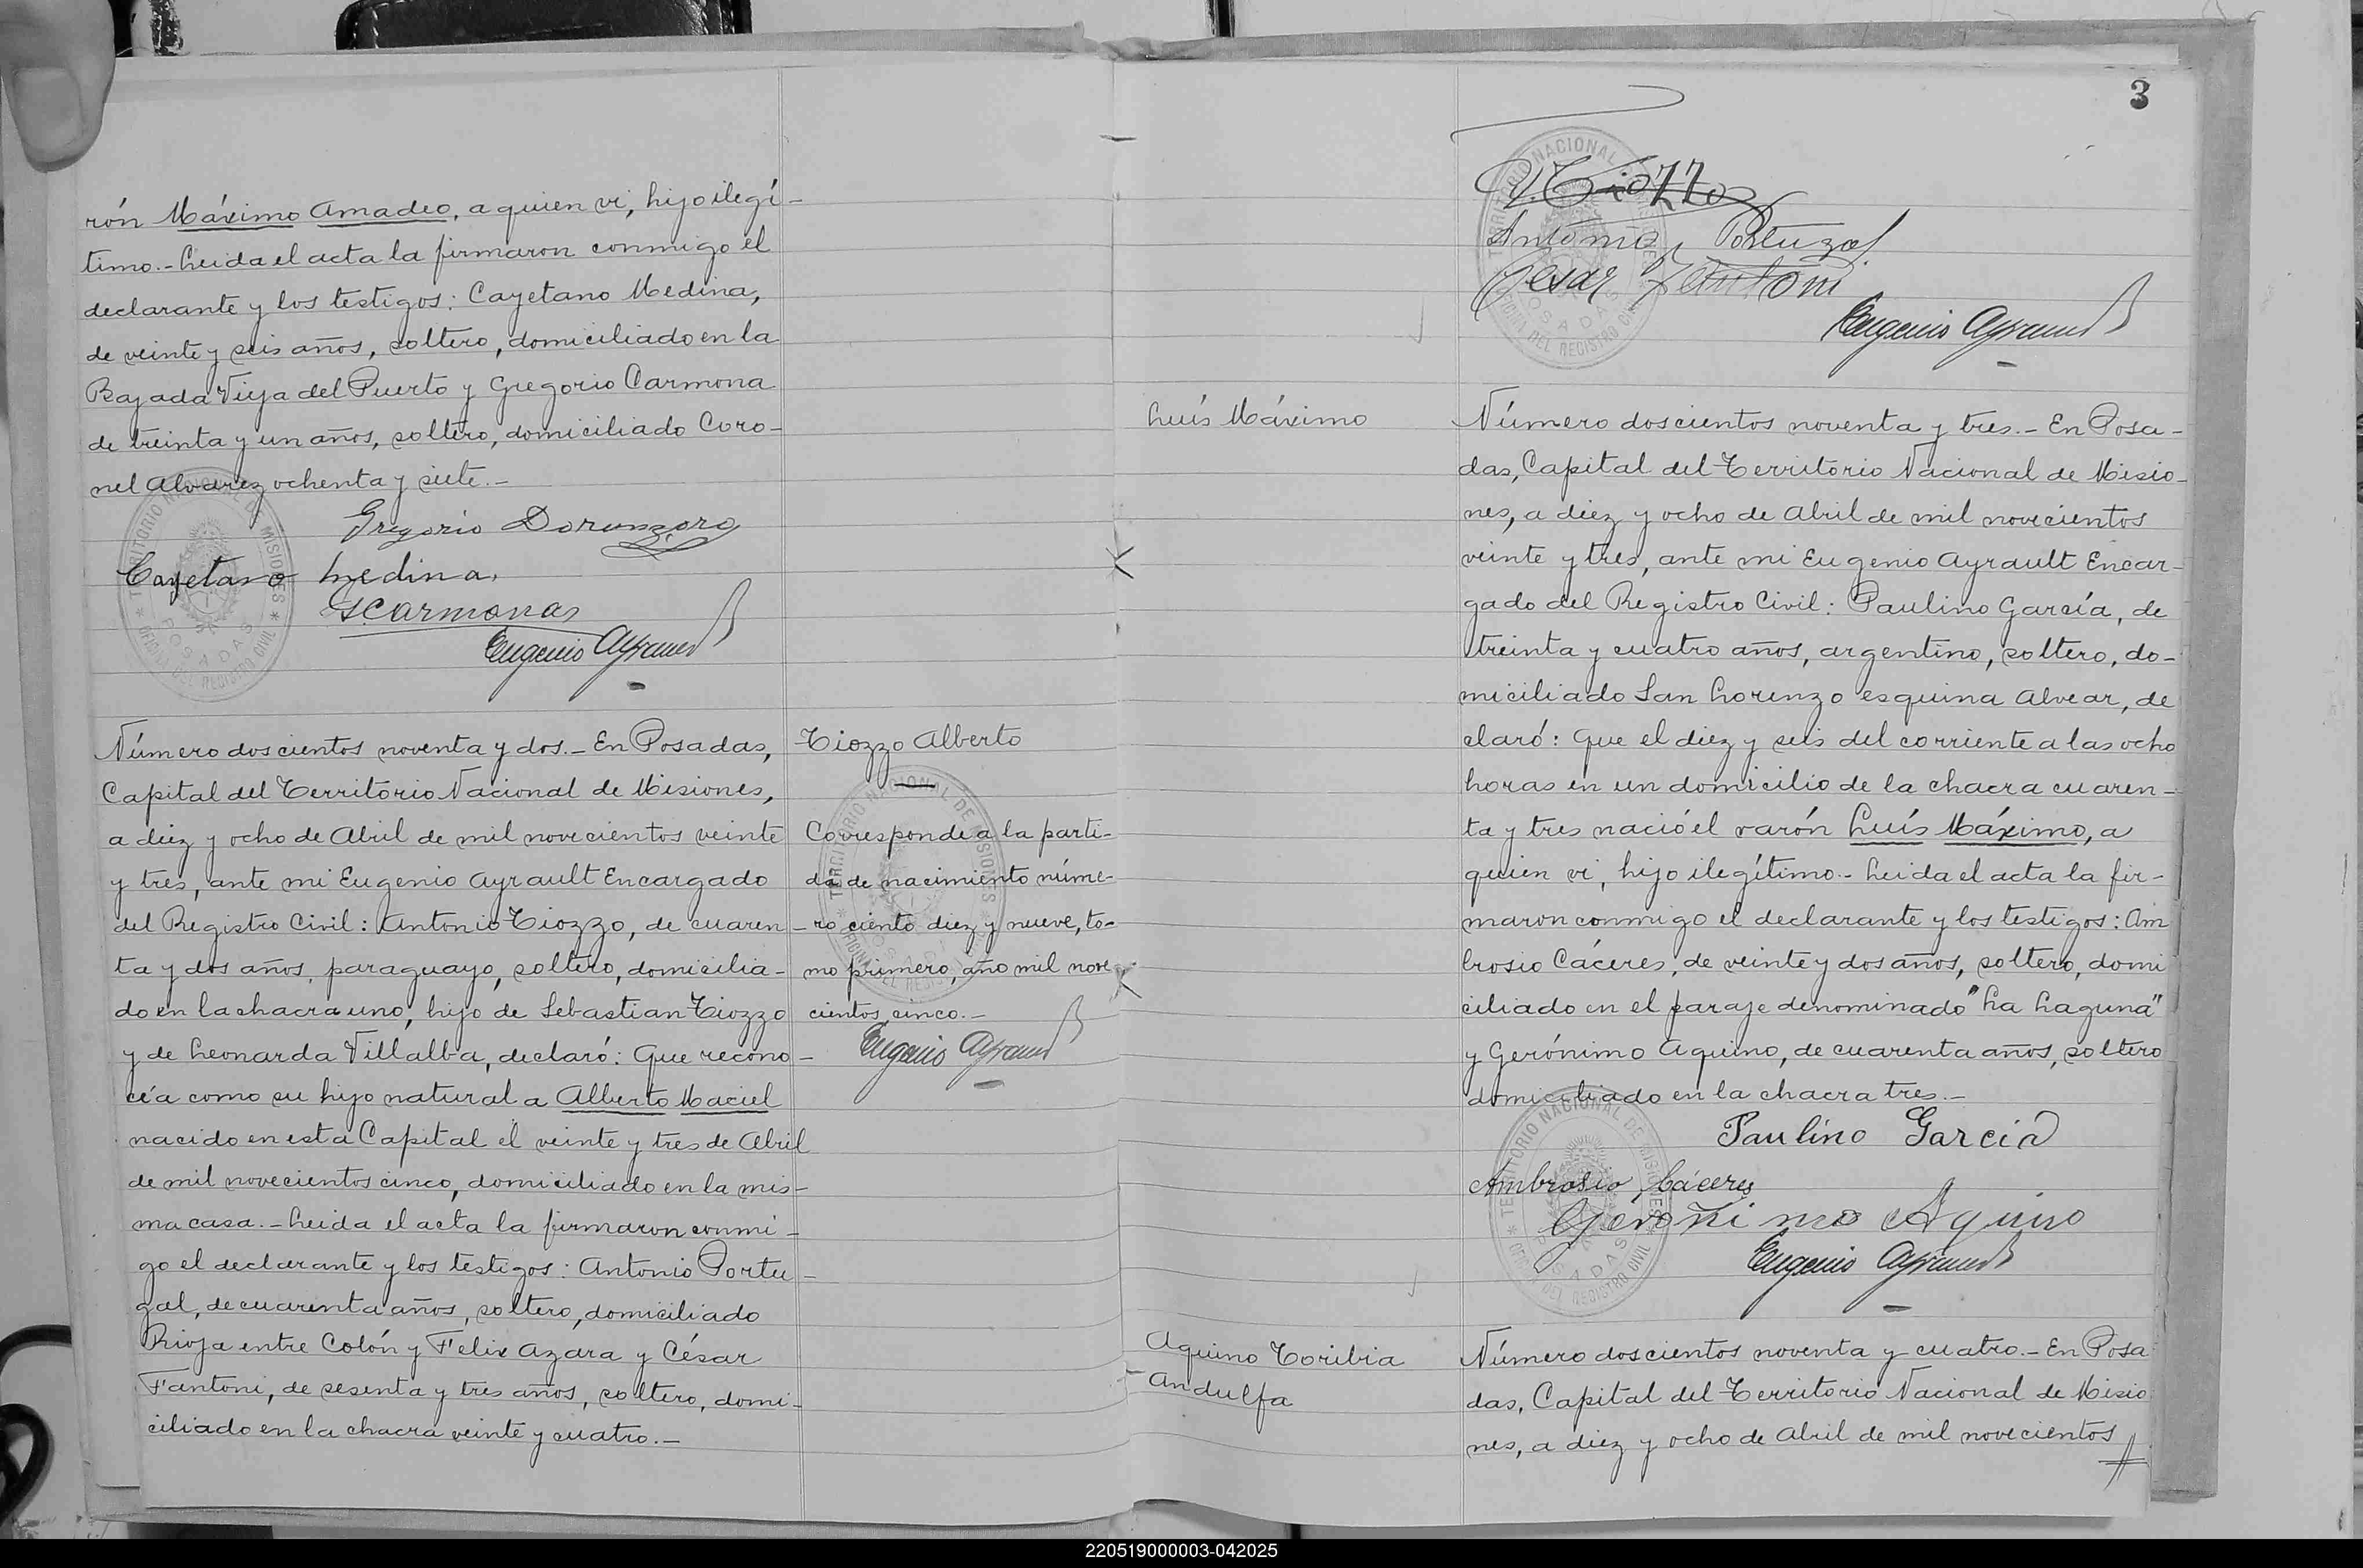 rón Máximo Amadeo, a quien vi, hijo ilegí-
timo.- Leida el acta la firmaron conmigo el
declarante y los testigos: Cayetano Medina,
de veinte y seis años, soltero, domiciliado en la
Bajada Vieja del Puerto y Gregorio Carmona
de treinta y un años, soltero, domiciliado Coro-
nel Alvarez ochenta y siete.-
Gregorio
Cayetano Medina
G Carmona
Eugenio Ayrault
TERRITORIO NACIONAL DE MISIONES
* OFICINA DEL REGISTRO CIVIL *
POSADAS
Número doscientos noventa y dos.- En Posadas,
Capital del Territorio Nacional de Misiones,
a diez y ocho de Abril de mil novecientos veinte
y tres, ante mi Eugenio Ayrault Encargado
del Registro Civil: Antonio Tiozzo, de cuaren-
ta y dos años, paraguayo, soltero, domicilia-
do en la chacra uno, hijo de Sebastian Tiozzo
y de Leonarda Villalba, declaró: Que recono-
cía como su hijo natural a Alberto Maciel
nacido en esta Capital el veinte y tres de Abril
de mil novecientos cinco, domiciliado en la mis-
ma casa.- Leida el acta la firmaron conmi-
go el declarante y los testigos: Antonio Portu-
gal, de cuarenta años, soltero, domiciliado
Rioja entre Colón y Felix Azara y César
Fantoni, de sesenta y tres años, soltero, domi-
ciliado en la chacra veinte y cuatro.-
Tiozzo Alberto
Corresponde a la parti-
da de nacimiento núme-
ro ciento diez y nueve, to-
mo primero, año mil nove
cientos cinco.-
Eugenio Ayrault
TERRITORIO NACIONAL DE MISIONES
3
A. Tiozzo
Antonio Portugal
Cesar Fantoni
Eugenio Ayrault
TERRITORIO NACIONAL DE MISIONES
OFICINA DEL REGISTRO CIVIL
POSADAS
Luís Máximo
Número doscientos noventa y tres.- En Posa-
das, Capital del Territorio Nacional de Misio-
nes, a diez y ocho de Abril de mil novecientos
veinte y tres, ante mi Eugenio Ayrault Encar-
gado del Registro Civil: Paulino García, de
treinta y cuatro años, argentino, soltero, do-
miciliado San Lorenzo esquina Alvear, de
claró: Que el diez y seis del corriente a las ocho
horas en un domicilio de la chacra cuaren-
ta y tres nació el varón Luís Máximo, a
quien vi, hijo ilegítimo.- Leida el acta la fir-
maron conmigo el declarante y los testigos: Am
brosio Cáceres, de veinte y dos años, soltero, domi
ciliado en el paraje denominado "La Laguna"
y Gerónimo Aquino, de cuarenta años, soltero
domiciliado en la chacra tres.-
Paulino Garcia
Ambrosio Cáceres
Geronimo Aquino
Eugenio Ayrault
TERRITORIO NACIONAL DE MISIONES
* OFICINA DEL REGISTRO CIVIL *
POSADAS
Aquino Toribia
Andulfa
Número doscientos noventa y cuatro.- En Posa
das, Capital del Territorio Nacional de Misio
nes, a diez y ocho de Abril de mil novecientos
220519000003-042025